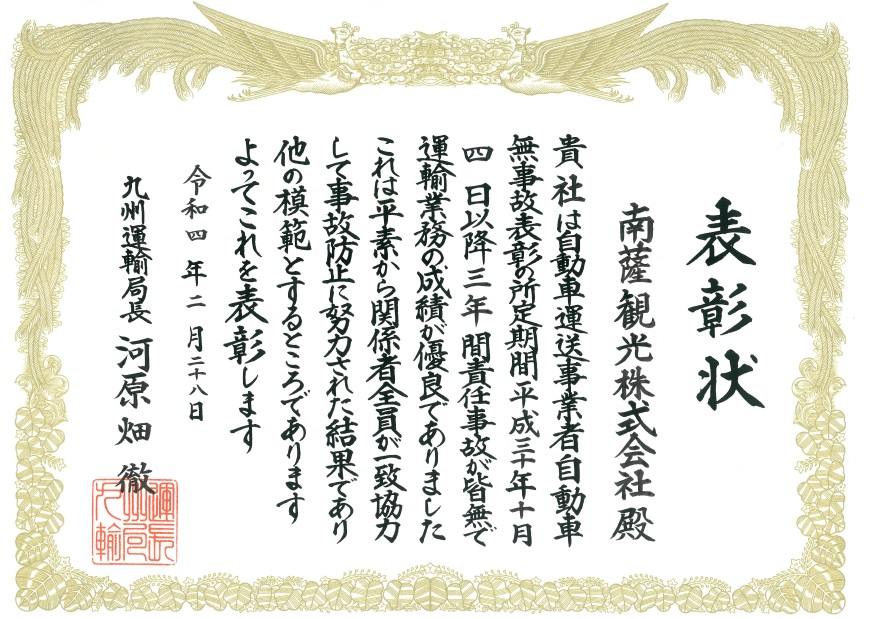 表彰状
南薩観光株式会社殿
貴社は自動車運送事業者自動車
無事故表彰の所定期間平成三十年十月
四日以降三年間責任事故が皆無で
運輸業務の成績が優良でありました
これは平素から関係者全員が一致協力
して事故防止に努力された結果であり
他の模範とするところであります
よってこれを表彰します
令和四年二月二十八日
九州運輸局長 河原畑徹